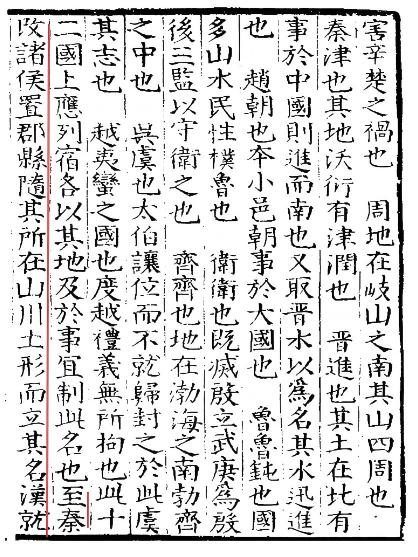 害辛楚之禍也　周地在岐山之南其山四周也
秦津也其地沃衍有津潤也　晉進也其土在北有
事於中國則進而南也又取晉水以爲名其水迅進
也　趙朝也夲小邑朝事於大國也　魯魯鈍也國
多山水民性樸魯也　衛衛也既滅殷立武庚爲殷
後三監以守衛之也　齊齊也地在渤海之南勃齊
之中也　吳虞也太伯讓位而不就歸封之於此虞
其志也　越夷蠻之國也度越禮義無所拘也此十
二國上應列宿各以其地及於事宜制此名也至秦
改諸侯置郡縣隨其所在山川土形而立其名漢就